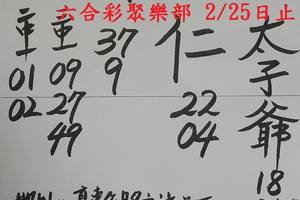 六合彩聚樂部 2/25日止
太子爺
18
仁
22
04
37
9
重
09
27
49
重
01
02